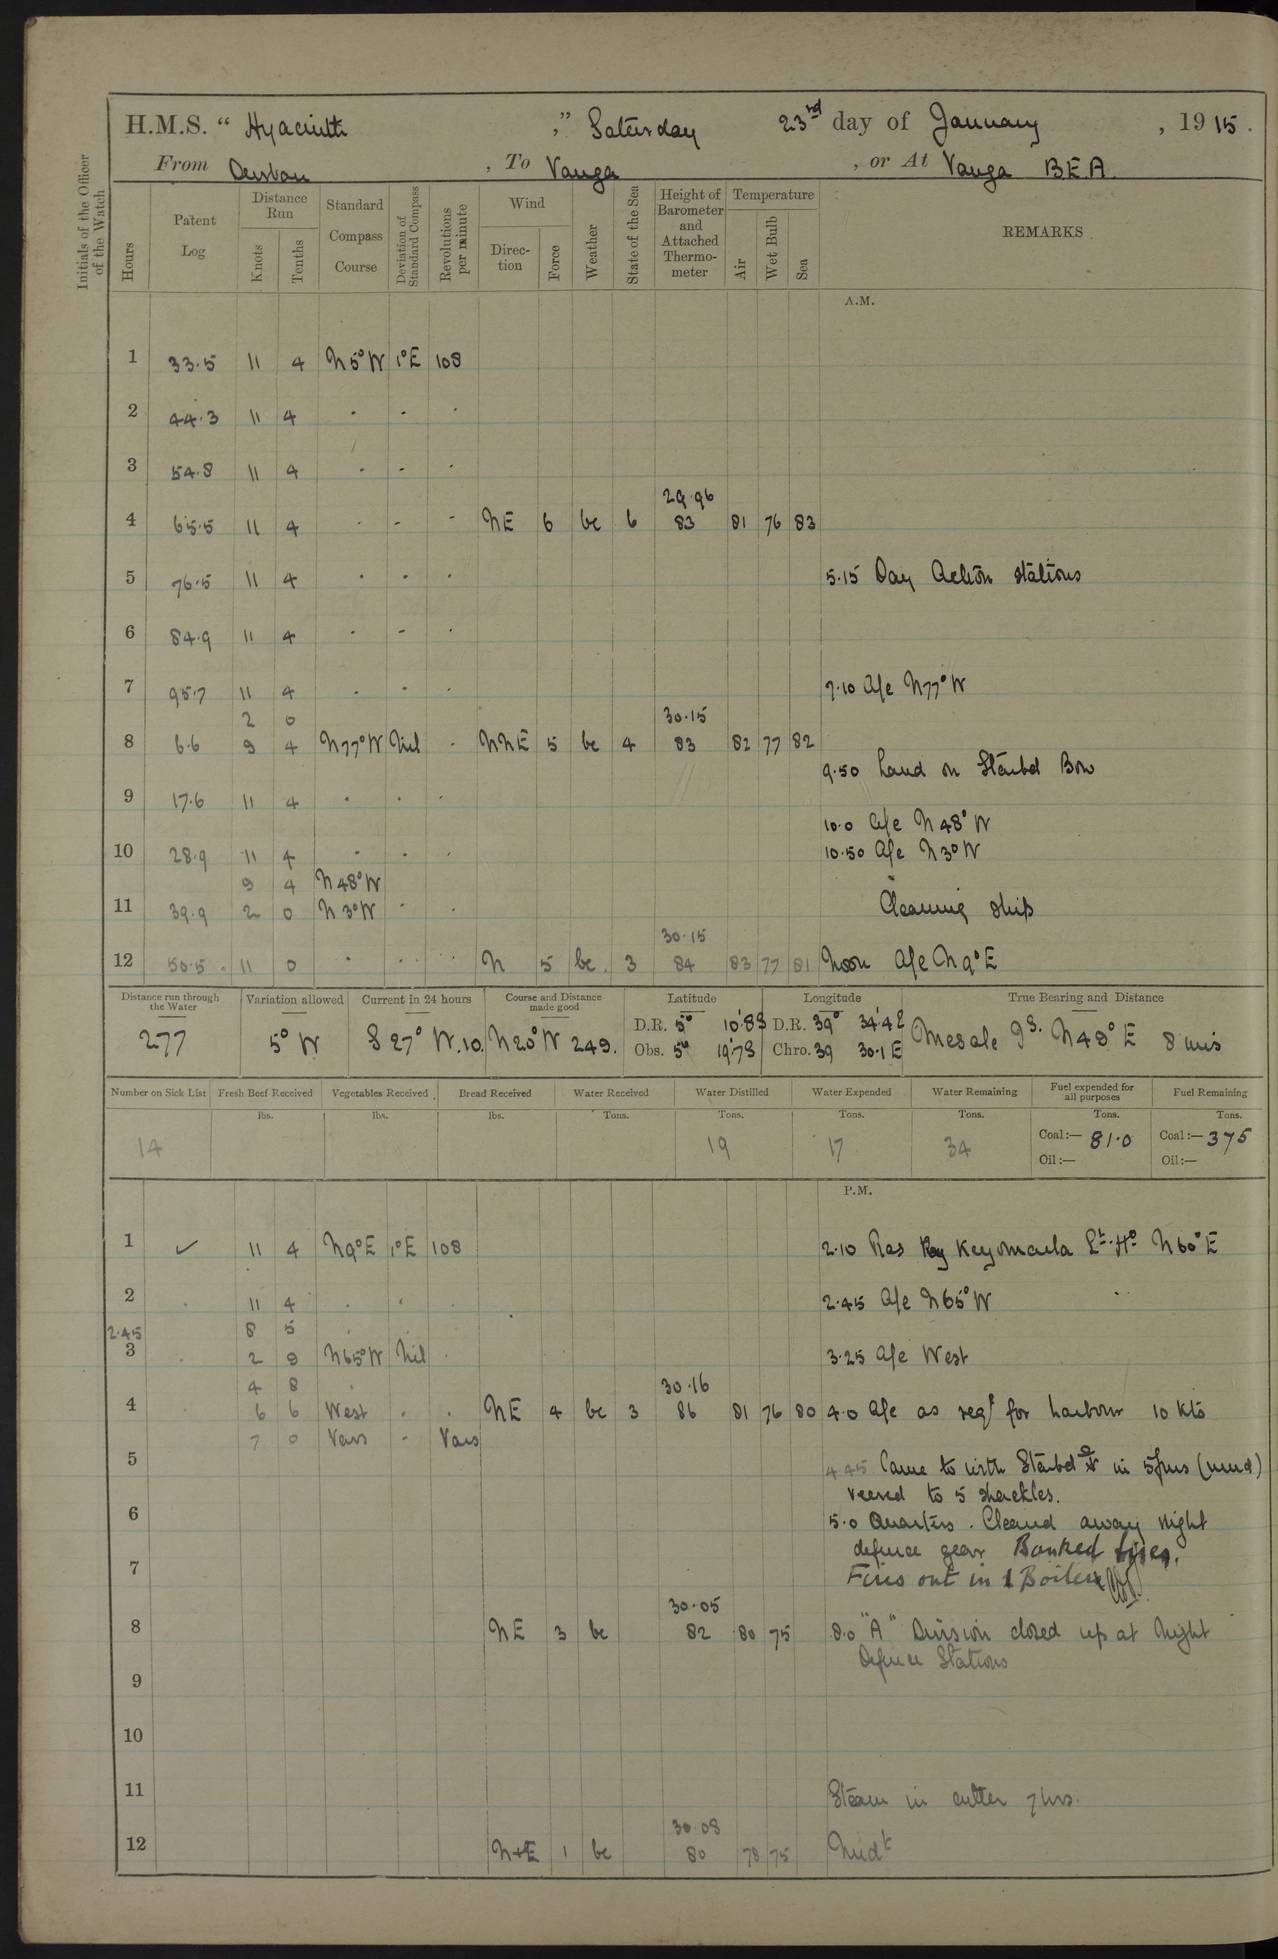 H.M.S. “ Hyacinth ,” Saturday 23rd day of January , 1915.
From Durban , To Vanga , or At Vanga B.E.A.
Initials of the Officer of the Watch
Hours
Patent Log
Distance Run
Knots
Tenths
Standard Compass Course
Deviation of Standard Compass
Revolutions per minute
Wind
Direction
Force
Weather
State of the Sea
Height of Barometer and Attached Thermometer
Temperature
Air
Wet Bulb
Sea
REMARKS
A.M.
1 33.5 11 4 N5°W 1°E 108
2 44.3 11 4 . - .
3 54.8 11 4 . - .
29.96
4 65.5 11 4 . - - NE 6 bc 6 83 81 76 83
5 76.5 11 4 . . . 5.15 Day Action Stations
6 84.9 11 4 . - .
7 95.7 11 4 . . . 7.10 A/c N77°W
2 0 30.15
8 6.6 9 4 N77°W Nil . NNE 5 bc 4 83 82 77 82
9.50 Land on Starbd Bow
9 17.6 11 4 . . .
10.0 A/c N48°W
10 28.9 11 4 . . . 10.50 A/c N3°W
9 4 N48°W
11 39.9 2 0 N3°W . . Cleaning Ship
30.15
12 50.5 11 0 . . . N 5 bc. 3 84 83 77 81 Noon A/c N9°E
Distance run through the Water
277
Variation allowed
5° W
Current in 24 hours
S 27° W.10.
Course and Distance made good
N20°W 249.
Latitude
D.R. 5° 10'.8S
Obs. 5° 19'.7S
Longitude
D.R. 39° 34'.4E
Chro. 39 30.1E
True Bearing and Distance
Mesale Is. N49°E 8 mis
Number on Sick List
14
Fresh Beef Received
lbs.
Vegetables Received
lbs.
Bread Received
lbs.
Water Received
Tons.
Water Distilled
Tons.
19
Water Expended
Tons.
17
Water Remaining
Tons.
34
Fuel expended for all purposes
Tons.
Coal:— 81.0
Oil:—
Fuel Remaining
Tons.
Coal:— 375
Oil:—
P.M.
1 ✓ 11 4 N9°E 1°E 108 2.10 Ras Keyomacla Lt. Ho N60°E
2 . 11 4 . . . 2.45 A/c N65°W
2.45 8 5 . .
3 . 2 9 N65°W Nil . 3.25 A/c West
4 8 . 30.16
4 . 6 6 West . . NE 4 bc 3 86 81 76 80 4.0 A/c as reqd for harbour 10 Kts
7 0 Vars - Vars
5 4.45 Came to with Starbd in 5fms (mud)
veered to 5 shackles.
6 5.0 Quarters. Cleared away night
defence gear Banked fires.
7 Fires out in 1 Boiler
30.05
8 NE 3 bc 82 80 75 8.0 "A" Division closed up at Night
Defence Stations
9
10
11 Steam in cutter 7 hrs.
30.08
12 NxE 1 bc 80 78 75 Midt